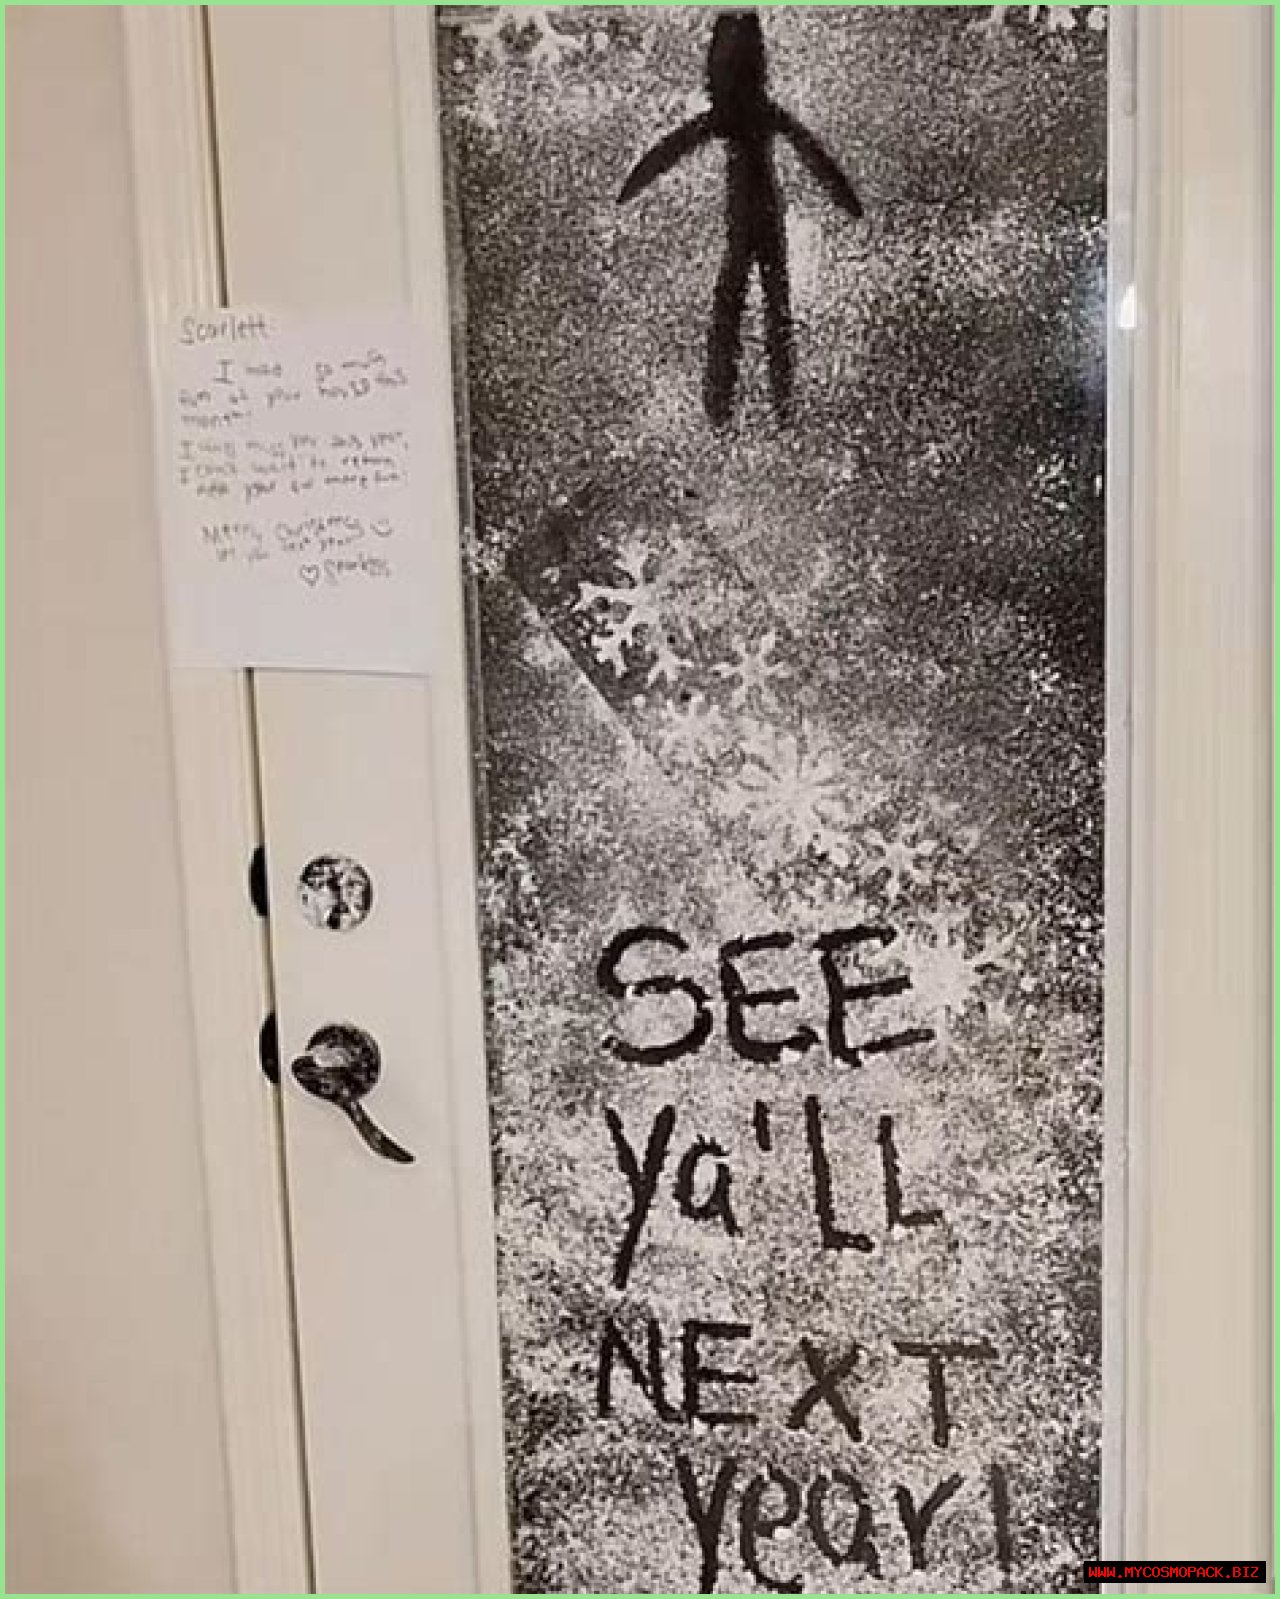 Scarlett
I had so much
fun at your house this
month!
I will miss you
I can't wait to return
next year for more fun!
Merry Christmas
see you next year
♡ Sparkles
SEE
Ya'LL
NEXT
year!
WWW.MYCOSMOPACK.BIZ